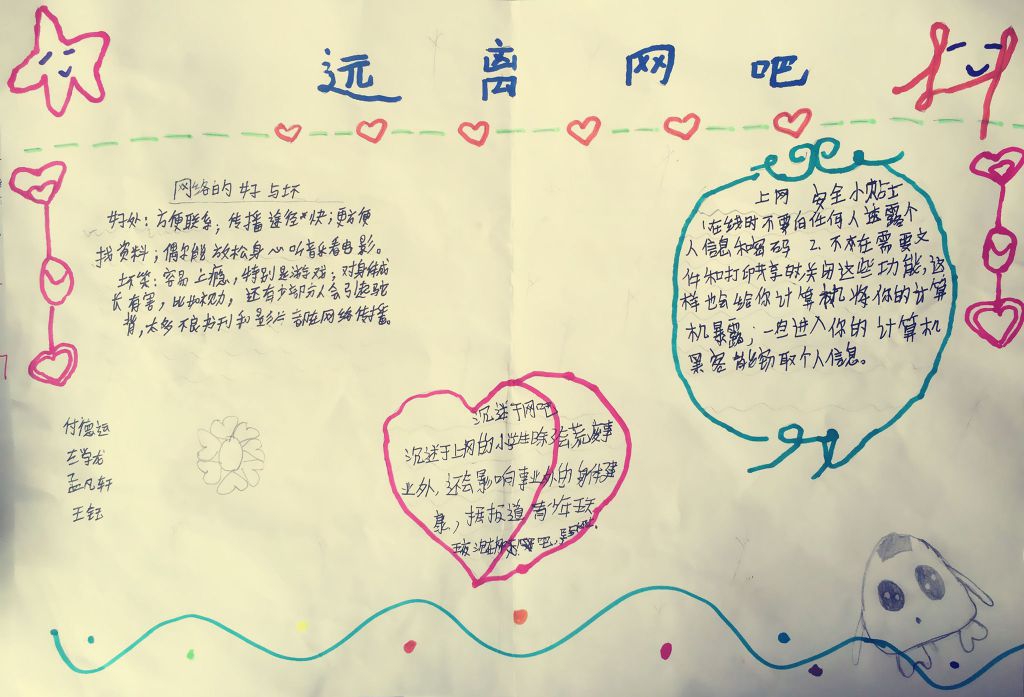 远离网吧
网络的好与坏
好处：方便联系；传播途径快；更方便
找资料；偶尔能放松身心听音乐看电影。
坏笑：容易上瘾，特别是游戏；对身体成
长有害，比如视力，还有少部分人会引起驼
背，太多不良书刊和影片都在网络传播。
上网 安全小贴士
1在线时不要向任何人透露个
人信息和密码 2.不在需要文
件和打印共享时关闭这些功能，这
样也会给你计算机将你的计算
机暴露；一旦进入你的计算机
黑客能窃取个人信息。
沉迷于网吧
沉迷于上网的小学生除了会荒废事
业外，还会影响事业外的身体健
康，据报道青少年王天
付德运
孟凡轩
王钰